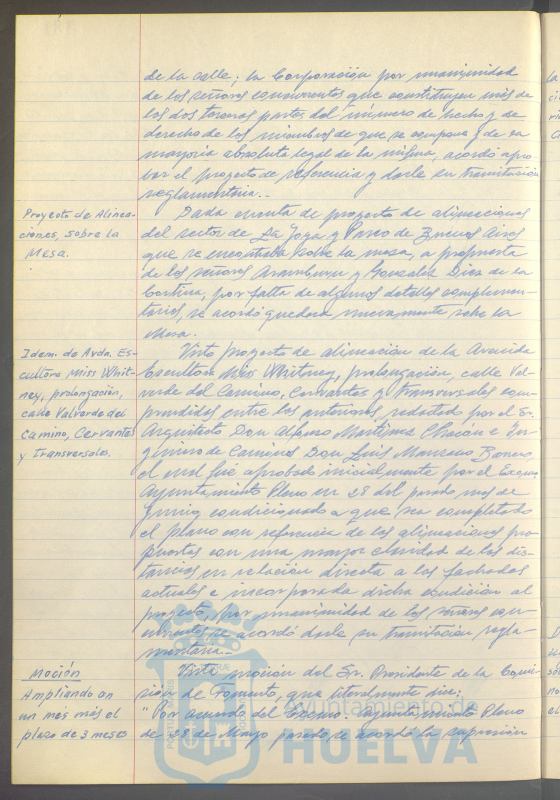 de la calle; la Corporación por unanimidad
de los señores concurrentes que constituyen más de
las dos terceras partes del número de hecho y de
derecho de los miembros de que se compone y de la
mayoría absoluta legal de la misma, acordó apro-
bar el proyecto de referencia y darle su tramitación
reglamentaria.-
Proyecto de Alinea-
ciones, sobre la
Mesa.
Dada cuenta de proyecto de alineaciones
del sector de La Joya y Paseo de Buenos Aires
que se encontraba sobre la mesa, a propuesta
de los señores Aramburu y González Díez de la
Cortina, por falta de algunos detalles complemen-
tarios, se acordó quedara nuevamente sobre la
Mesa.
Idem. de Avda. Es-
cultora Miss Whit-
ney, prolongación,
calle Valverde del
Camino, Cervantes
y Transversales.
Visto proyecto de alineación de la Avenida
Escultora Miss Whitney, prolongación, calle Val-
verde del Camino, Cervantes y Transversales com-
prendidas entre las anteriores, redactado por el Sr.
Arquitecto Don Alfonso Martínez Chacón e In-
geniero de Caminos Don Luis Manzano
el cual fué aprobado inicialmente por el Excmo.
Ayuntamiento Pleno en 28 del pasado mes de
Junio condicionado a que sea completado
el plano con referencia de las alineaciones pro-
puestas con una mayor claridad de las dis-
tancias en relación directa a las fachadas
actuales e incorporada dicha condición al
proyecto, por unanimidad de los señores con-
currentes, se acordó darle su tramitación regla-
mentaria.-
Moción
Ampliando en
un mes más el
plazo de 3 meses
Vista moción del Sr. Presidente de la Comi-
sión de Fomento, que literalmente dice:
"Por acuerdo del Excmo. Ayuntamiento Pleno
de 28 de Mayo pasado se acordó la supresión
Ayuntamiento de
HUELVA